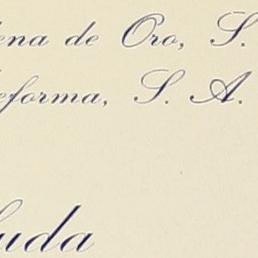 ena de Oro, S.
eforma, S. A.
uda